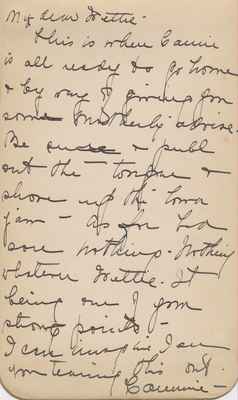 My dear Nettie -
This is when Cannie
is all ready to go home
& by way of giving you
some Motherly advise.
Be sure & pull
out the - tongue &
shove up the lower
jaw - As you had
said nothing. Nothing
whatever Nettie. It
being one of your
strong points -
I can imagine I see
you tearing this out.
Cannie -